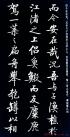 而今安在哉況吾與子漁樵於
江渚之上侶魚蝦而友麋鹿
駕一葉扁舟舉匏樽以相